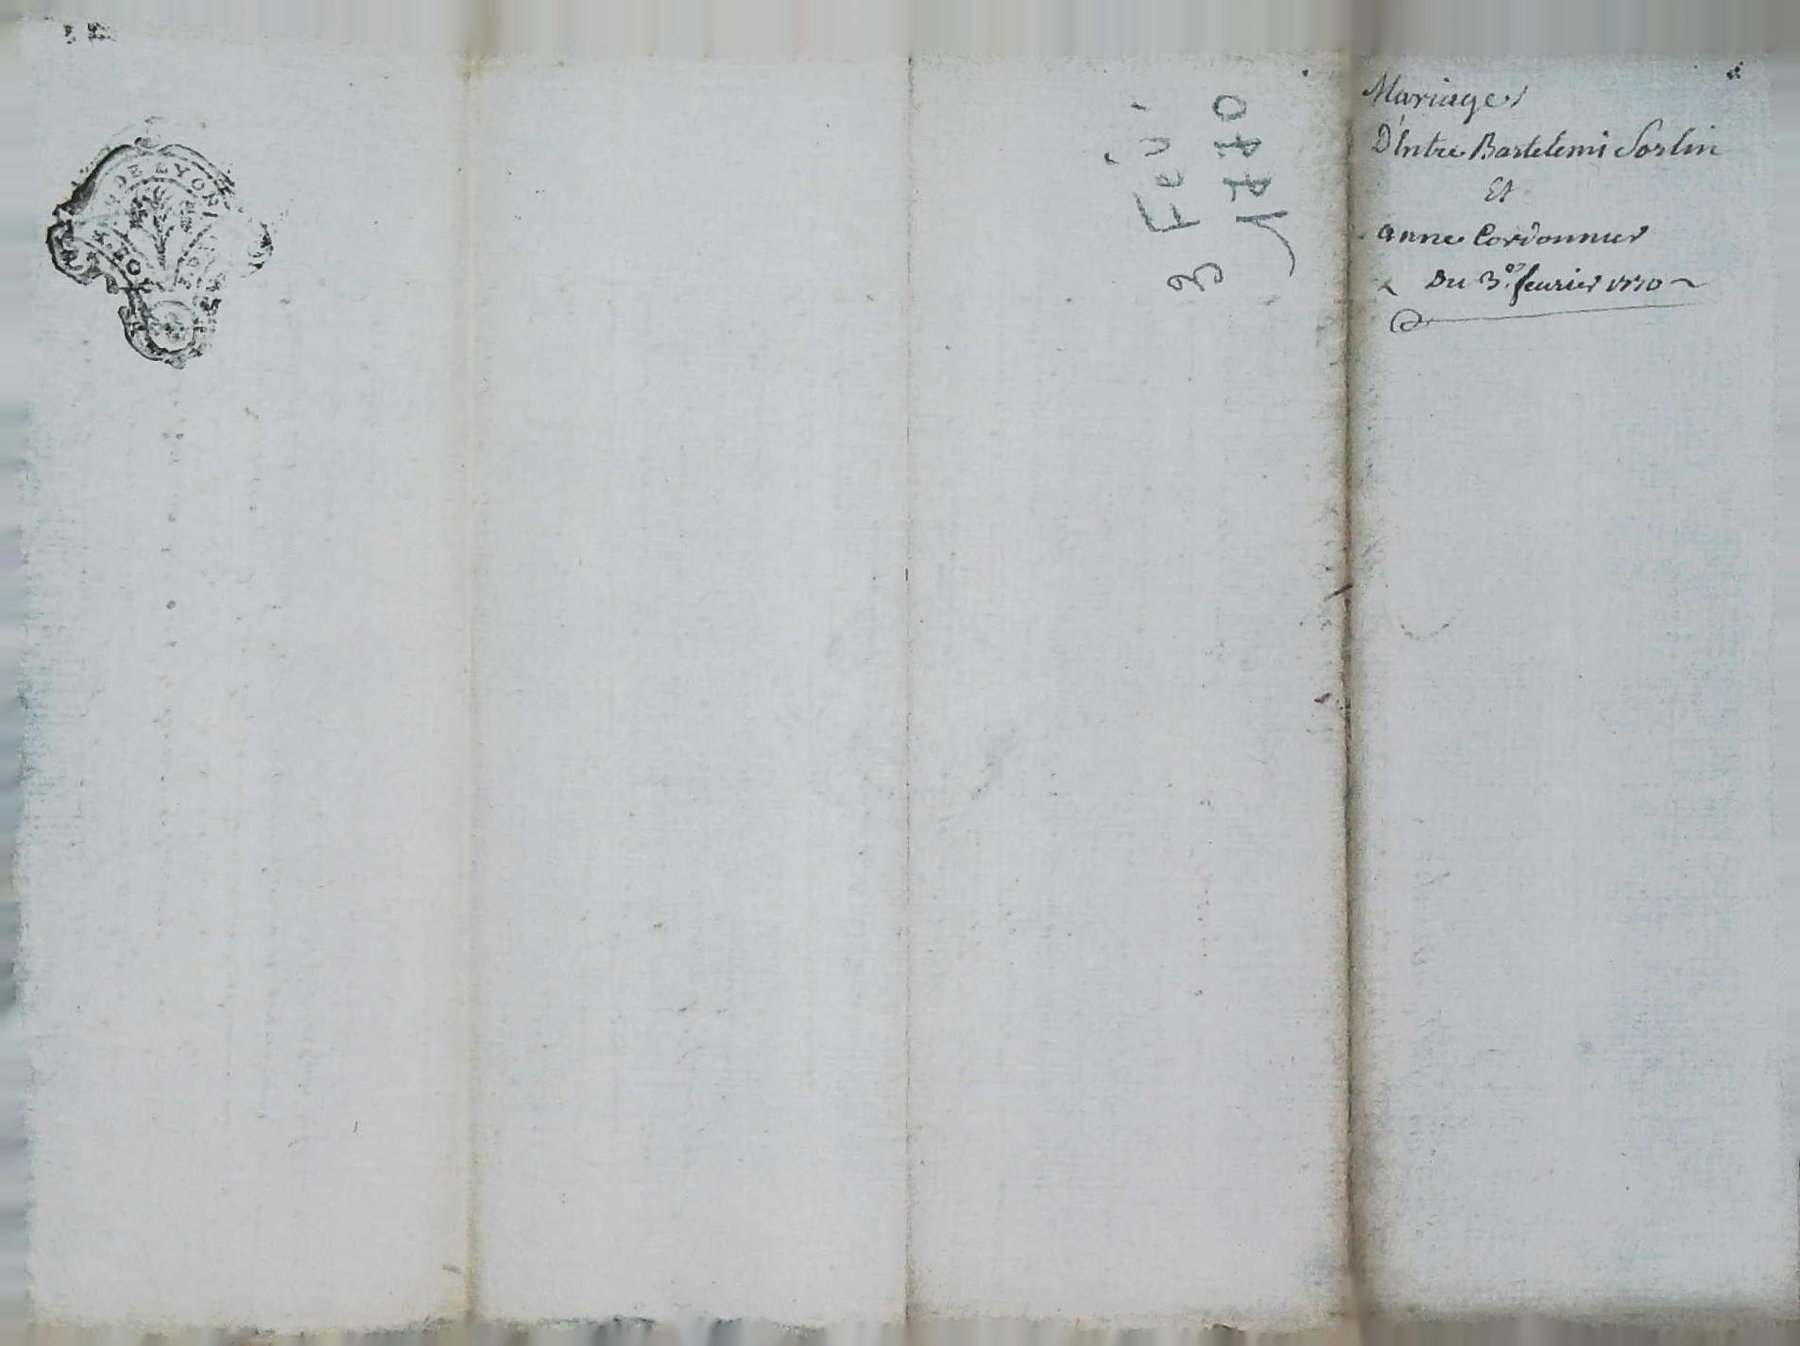 3 Fév.
1770
Mariage
D'Entre Bartelemi Sorlin
Et
anne Cordonnier
Du 3.e fevrier 1770